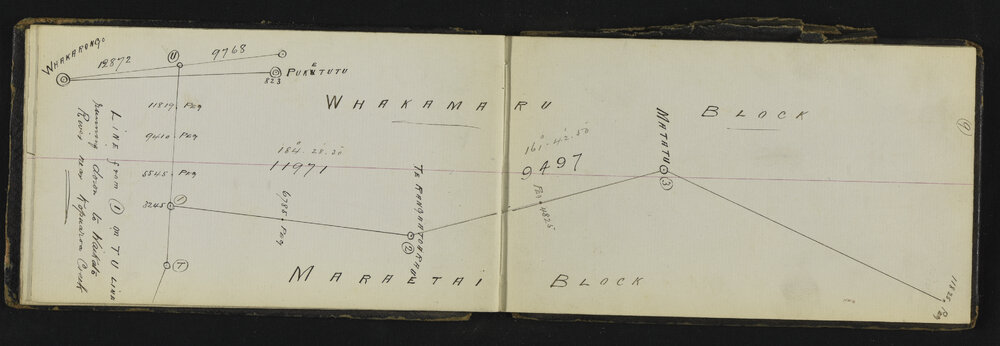 WHAKARONGO
12872
U
9768
PUKETUTU
823
11819. Peg
9410. Peg
5545. Peg
3245
1
T
LINE from 1 on T U LINE
running down to Waikato
River near Creek
WHAKAMARU BLOCK
164. 28. 30
11971
6788. Peg
2
161. 42. 50
9497
Peg. 4825
MATATU
3
9
11825. Peg
MARAETAI BLOCK